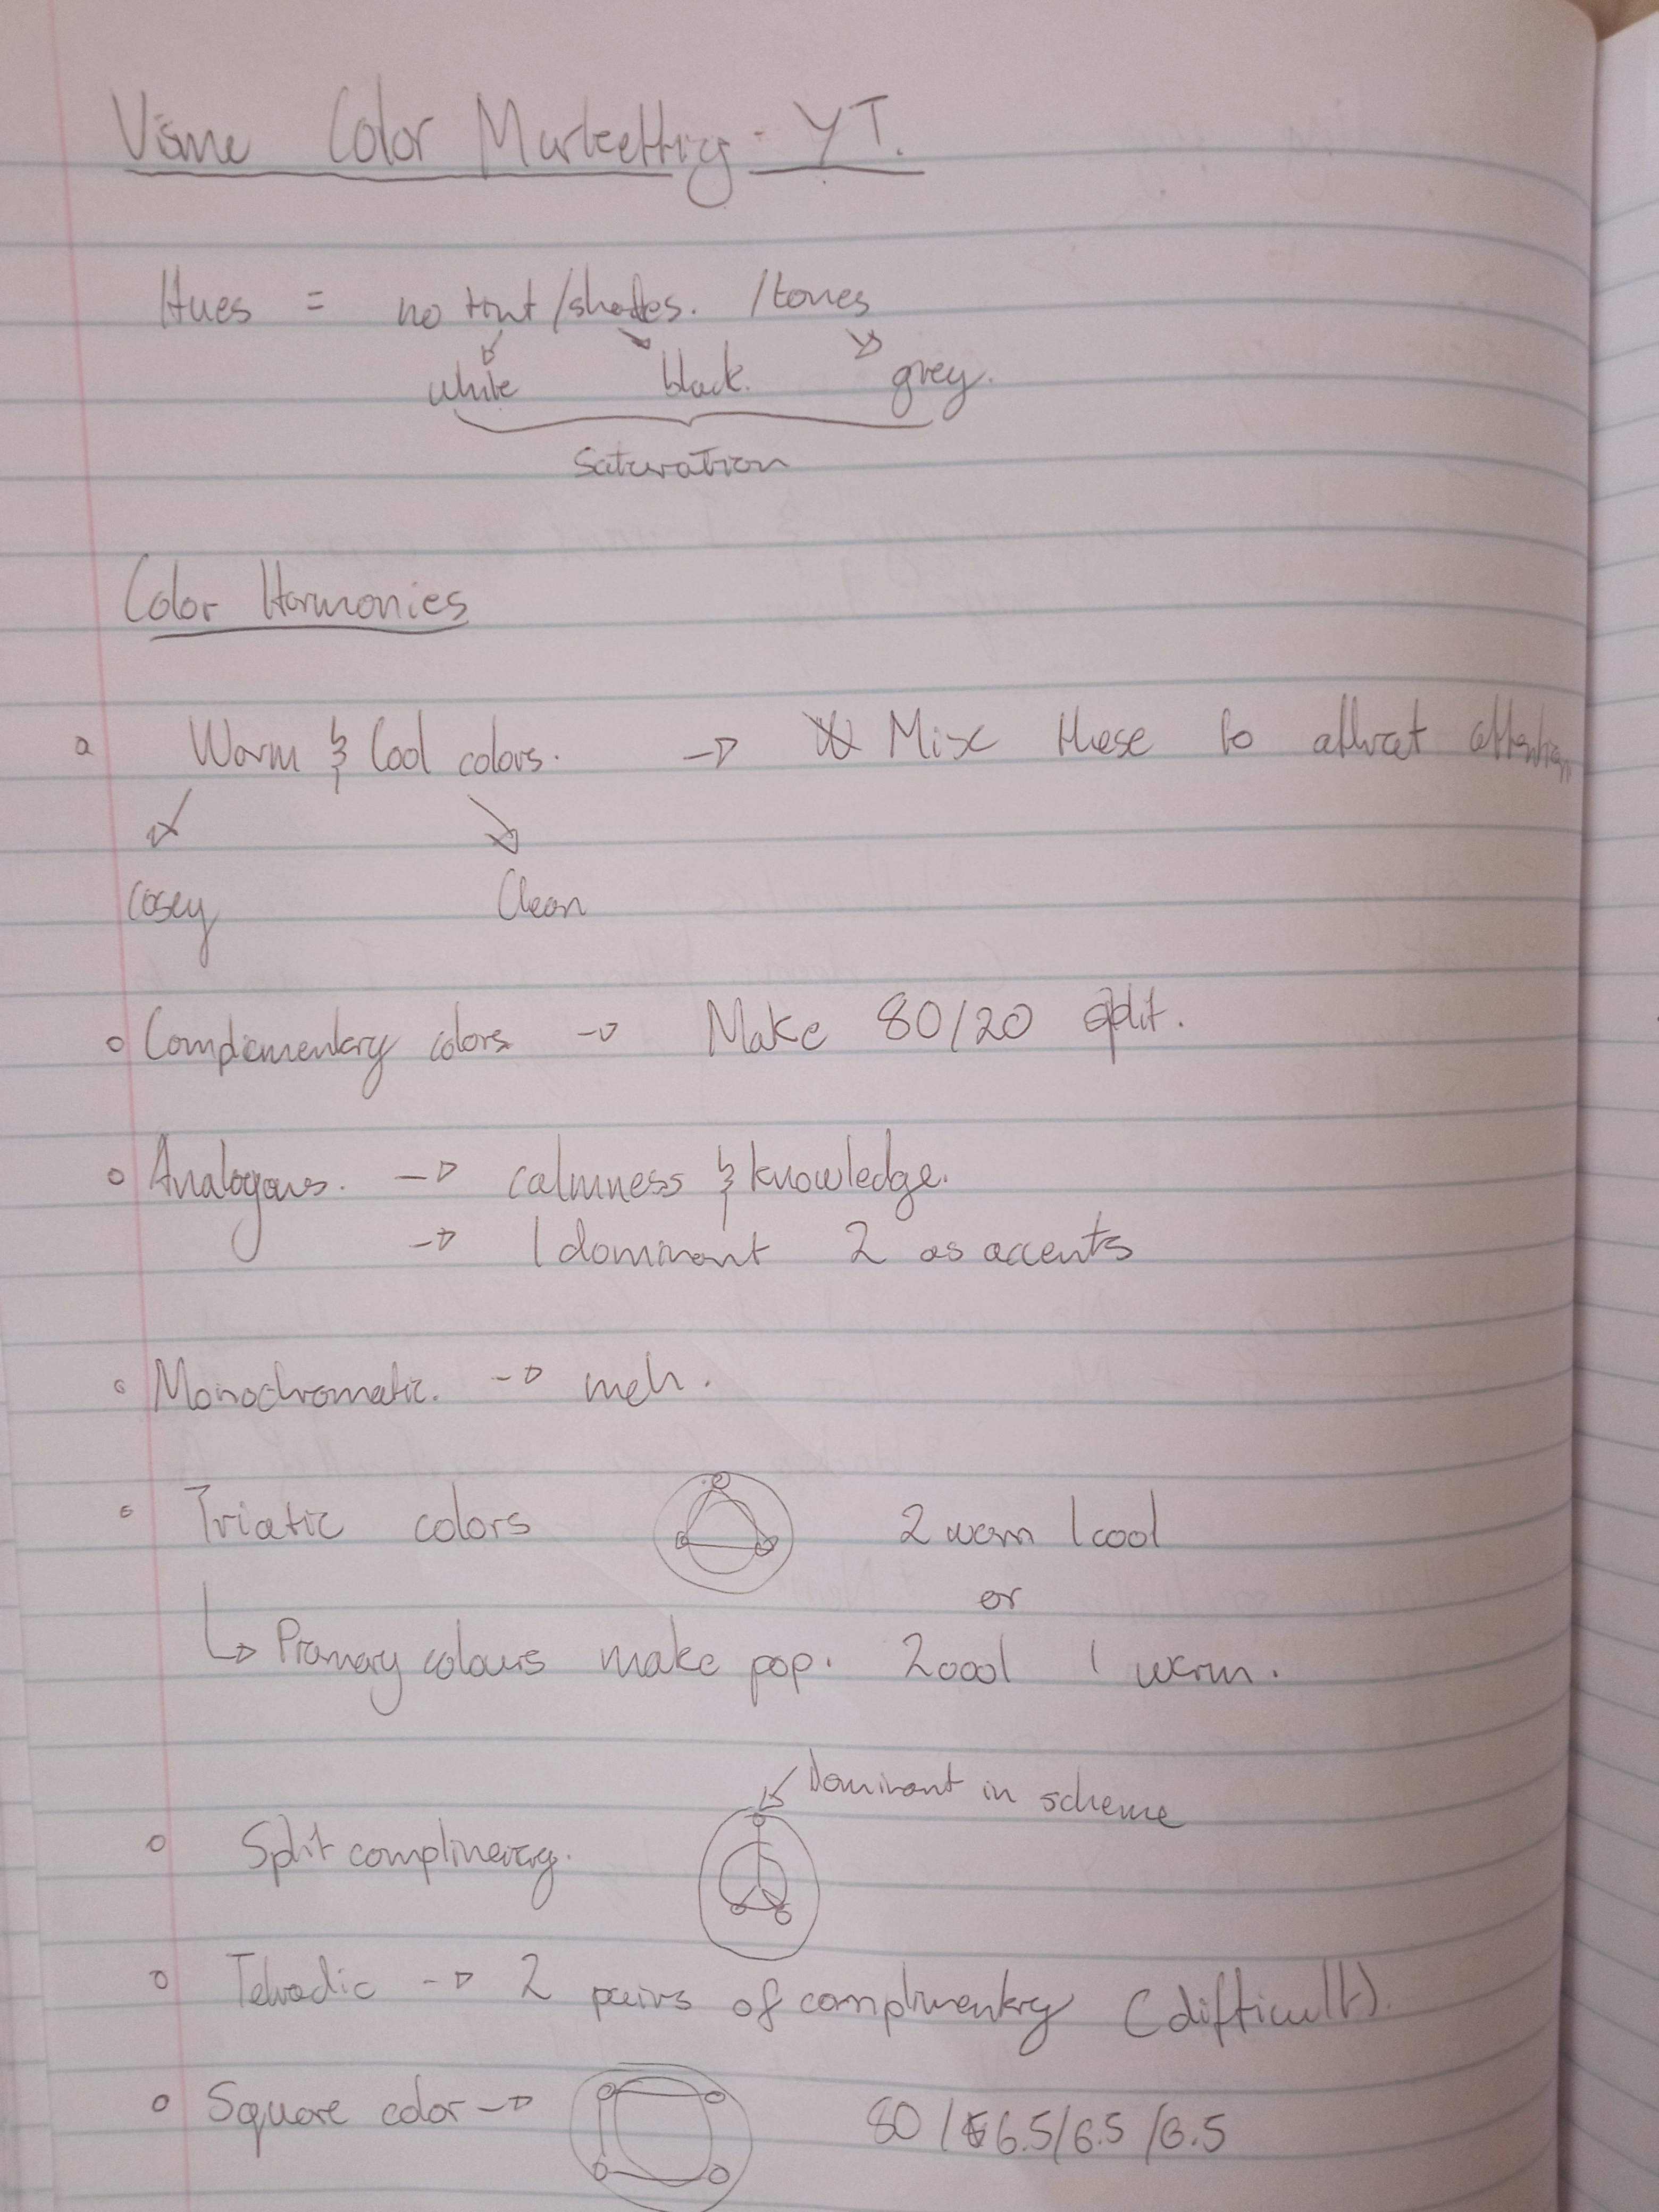 Visme Color Marketting - YT.
Hues = no tint /shades. /tones
white black. grey.
Saturation
Color Harmonies
Warm & Cool colors. → Mix these to attract attention
cosey Clean
Complementary colors → Make 80/20 split.
Analogous. → calmness & knowledge.
→ 1 dominant 2 as accents
Monochromatic. → meh.
Triatic colors 2 warm 1 cool
or
↳ Primary colours make pop. 2 cool 1 warm.
Dominant in scheme
Split
Tetradic → 2 pairs of complimentary (difficult).
Square color → 80 / 6.5/6.5 /6.5